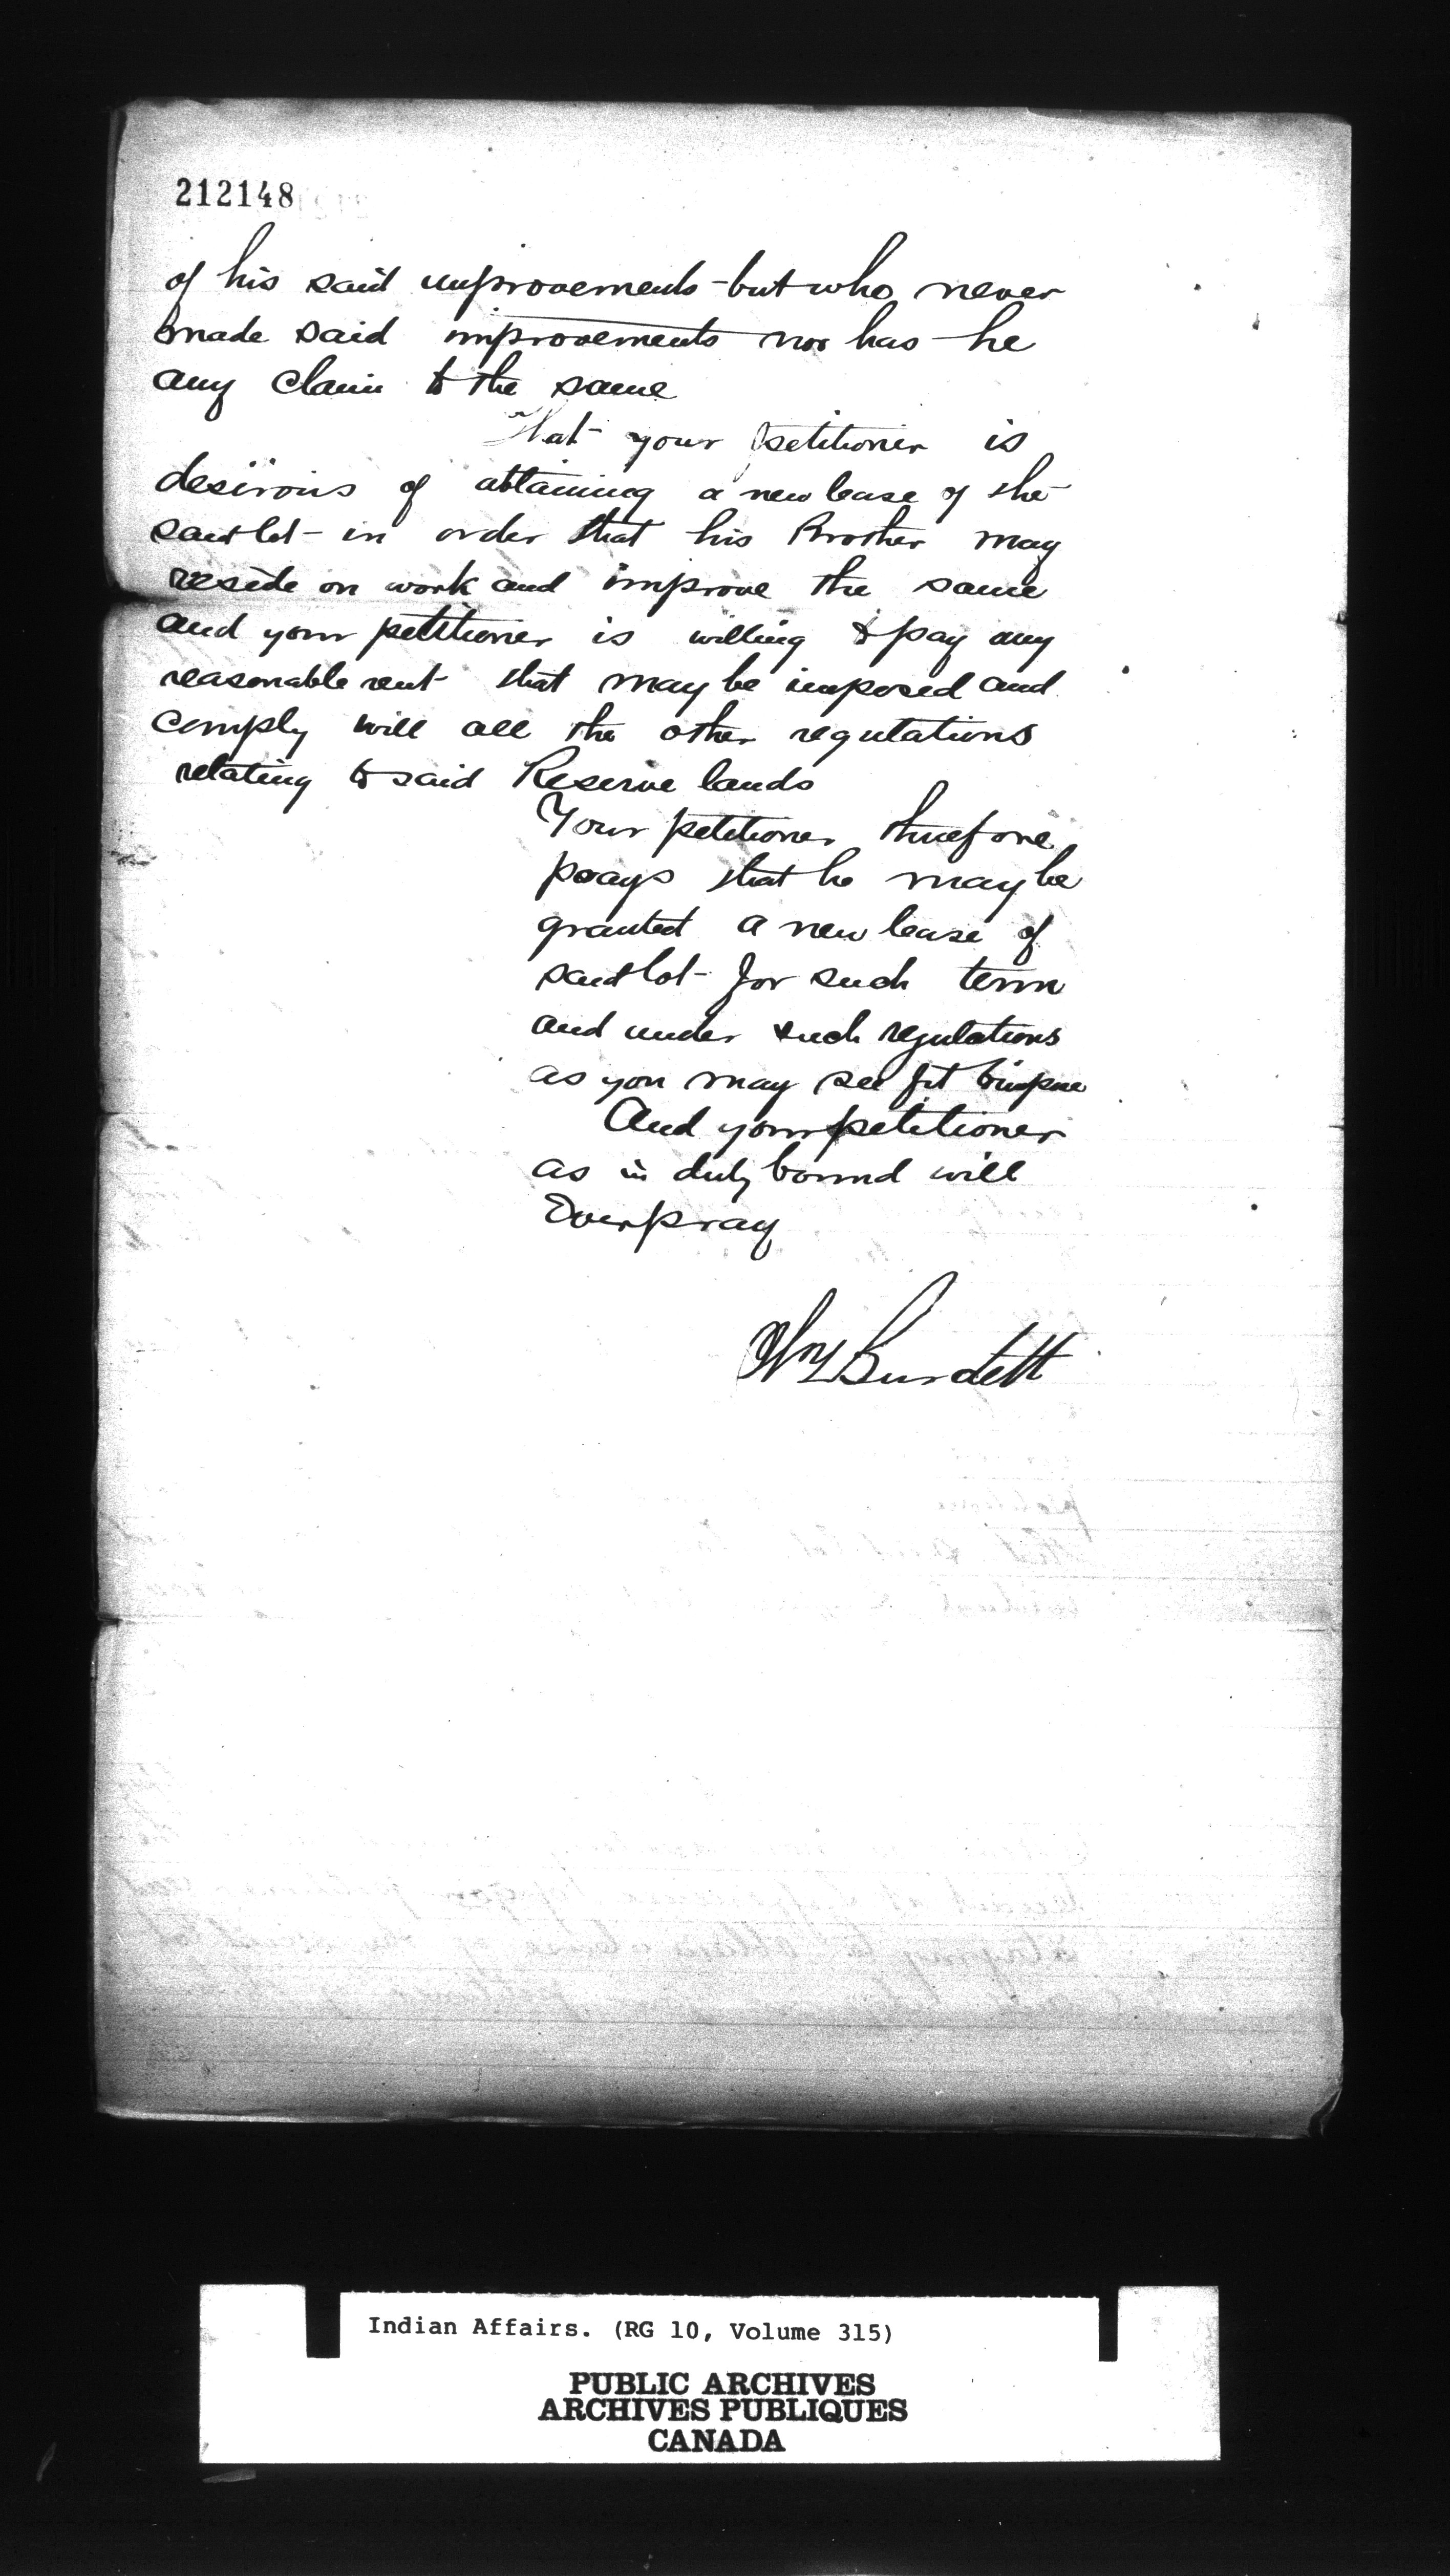 212148
of his said improvements - but who never
made said improvements nor has he
any claim to the same
That your petitioner is
desirous of obtaining a new lease of the
said lot - in order that his Brother may
reside on work and improve the same
and your petitioner is willing to pay any
reasonable rent that may be imposed and
comply will all the other regulations
relating to said Reserve lands
Your petitioner therefore
prays that he may be
granted a new lease of
said lot - for such term
and under such regulations
as you may see fit to impose
And your petitioner
as in duty bound will
Ever pray
Wm Burdett
Indian Affairs. (RG 10, Volume 315)
PUBLIC ARCHIVES
ARCHIVES PUBLIQUES
CANADA